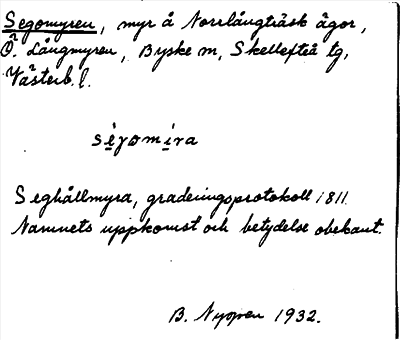 Segomyren, myr å Norrlångträsk ägor,
Ö. Långmyren, Byske sn, Skellefteå tg,
Västerb. l.
segomira
Seghållmyra, graderingsprotokoll 1811.
Namnets uppkomst och betydelse obekant.
B. Nyman 1932.